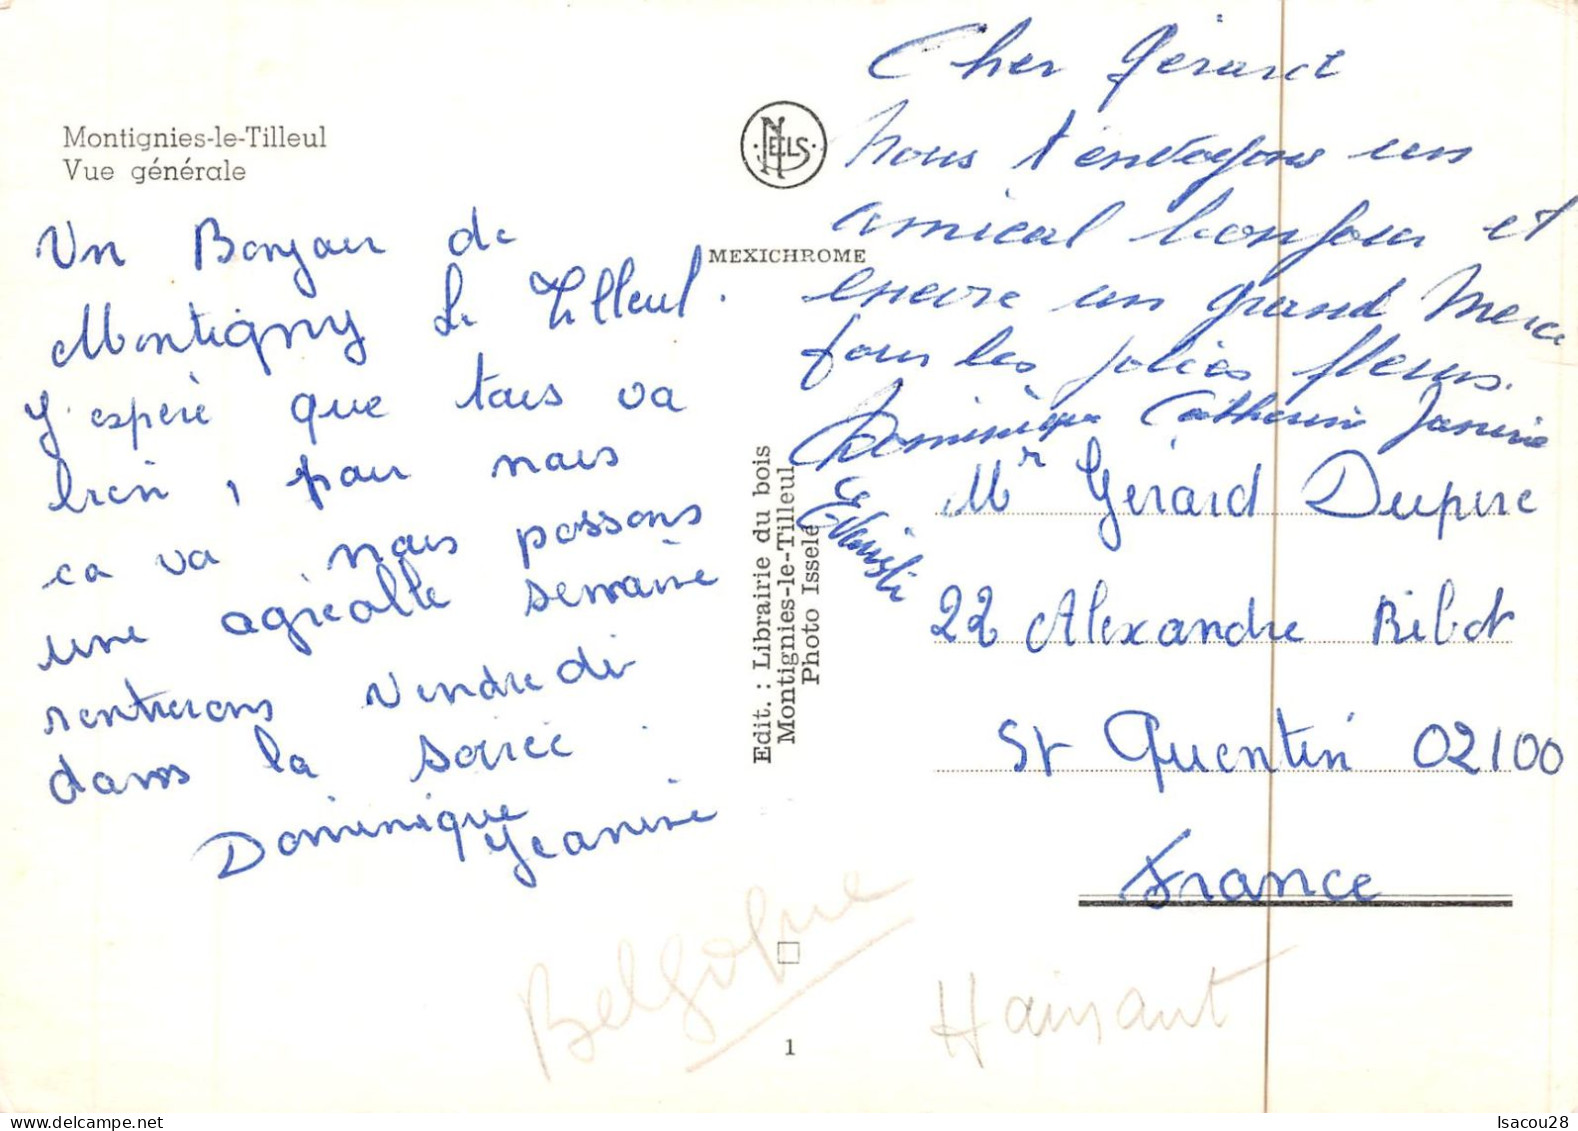 Montignies-le-Tilleul
Vue générale
Un Bonjour de
Montigny Le Tilleul.
J'espère que tous va
bien, pour nous
ca va, nous passons
une agréable semaine
rentrerons Vendredi
dans la soirée
Dominique
Jeanine
NELS
MEXICHROME
Edit. : Librairie du bois
Montignies-le-Tilleul
Photo Isselé
Cher Gérard
Nous t'envoyons un
amical bonjour et
encore un grand Merci
pour les jolies fleurs.
Dominique Catherine Janine
Mr Gérard Dupire
22 Alexandre Ribot
St Quentin 02100
France
Belgique
Hainaut
1
Isacou28